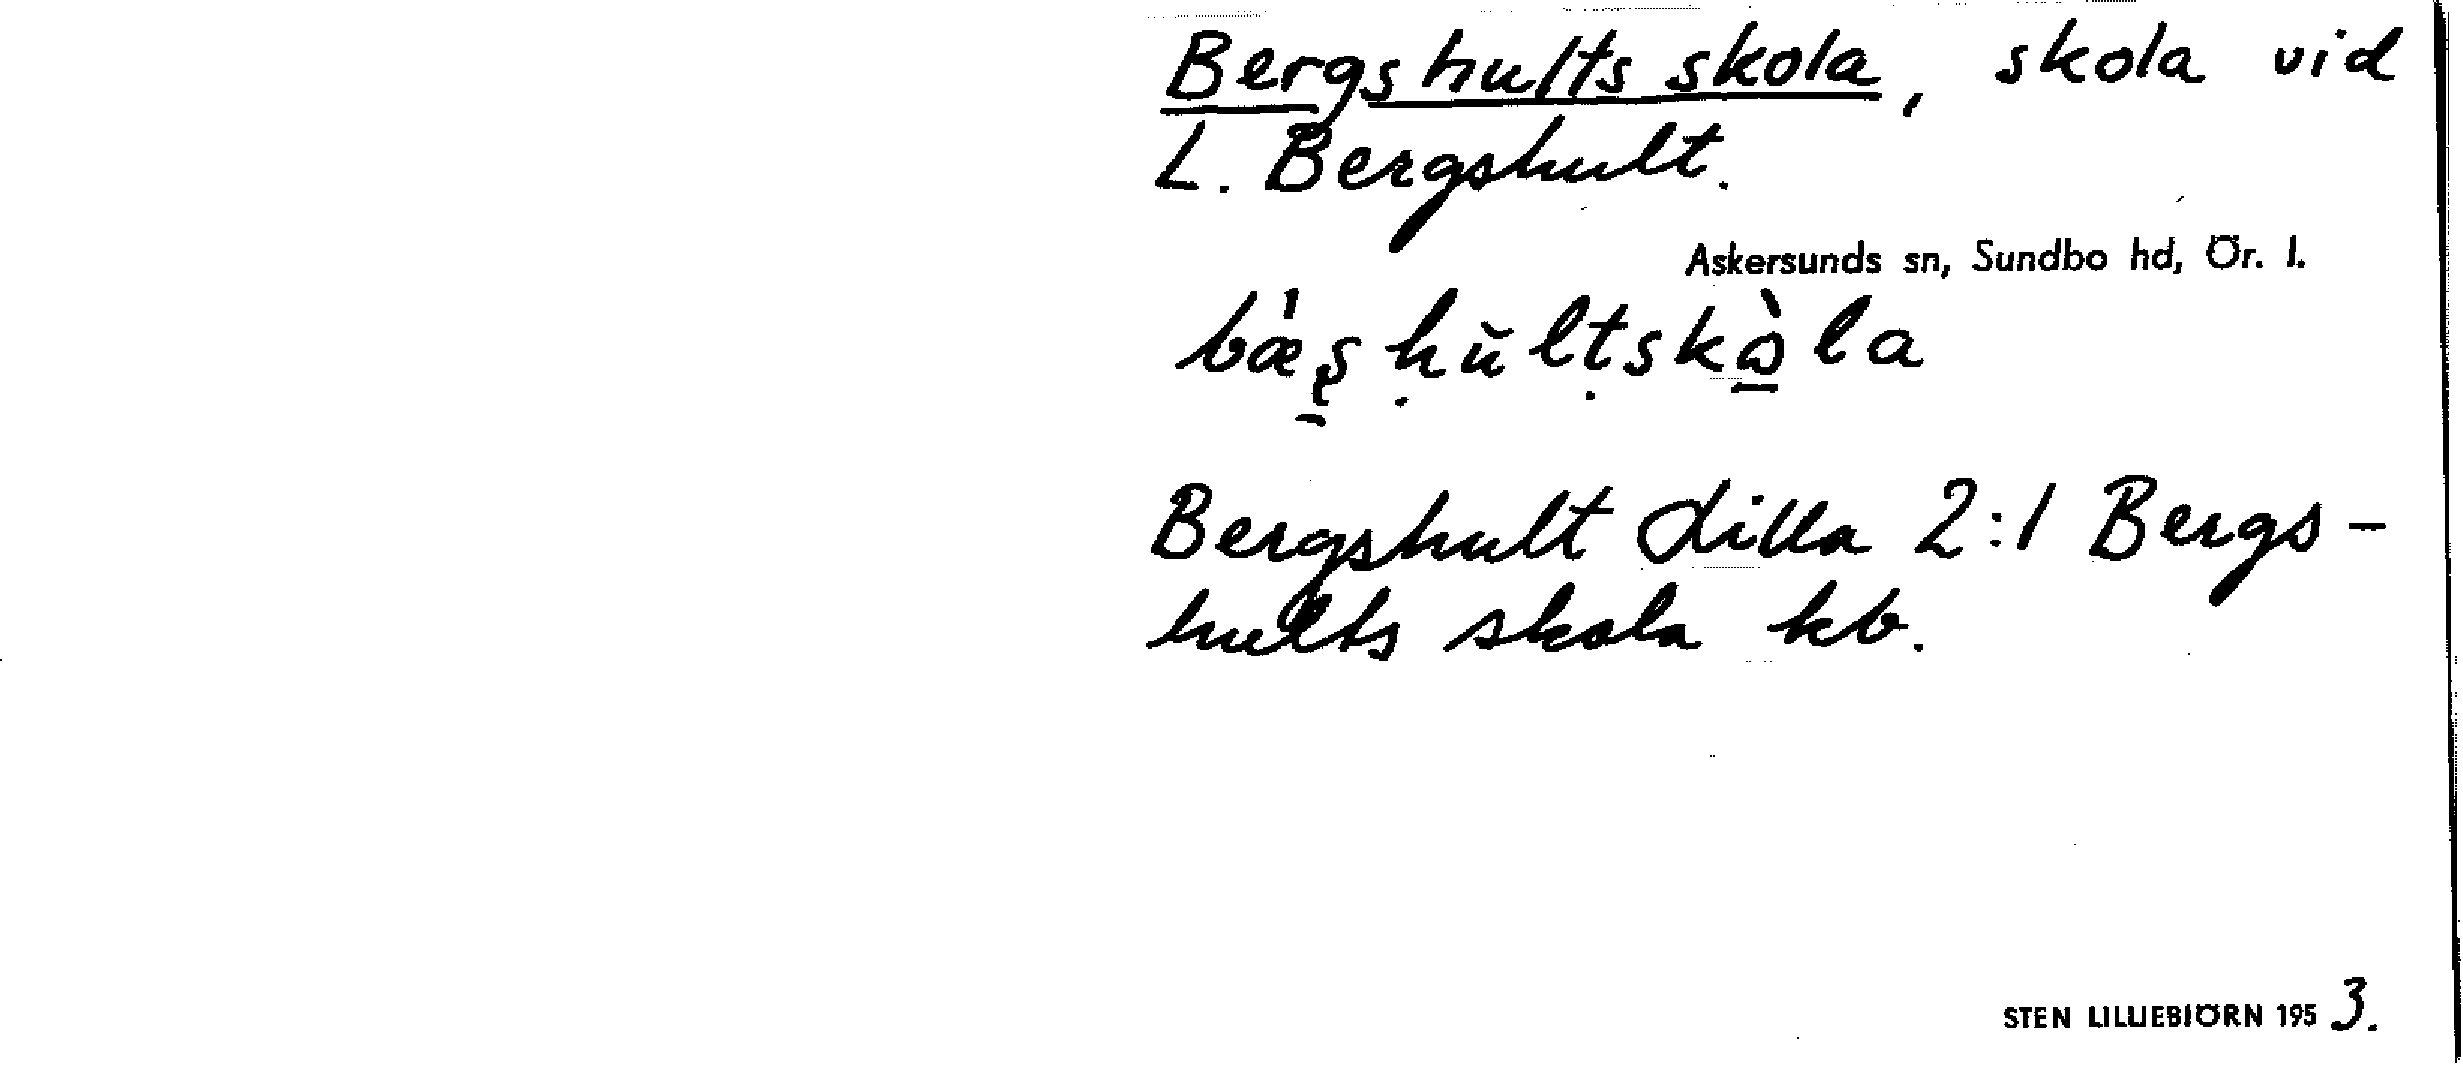 Bergshults skola, skola vid
L. Bergshult.
Askersunds sn, Sundbo hd, Ör. l.
Bergshult Lilla 2:1 Bergs-
hults skola kb.
STEN LILLIEBIÖRN 1953.